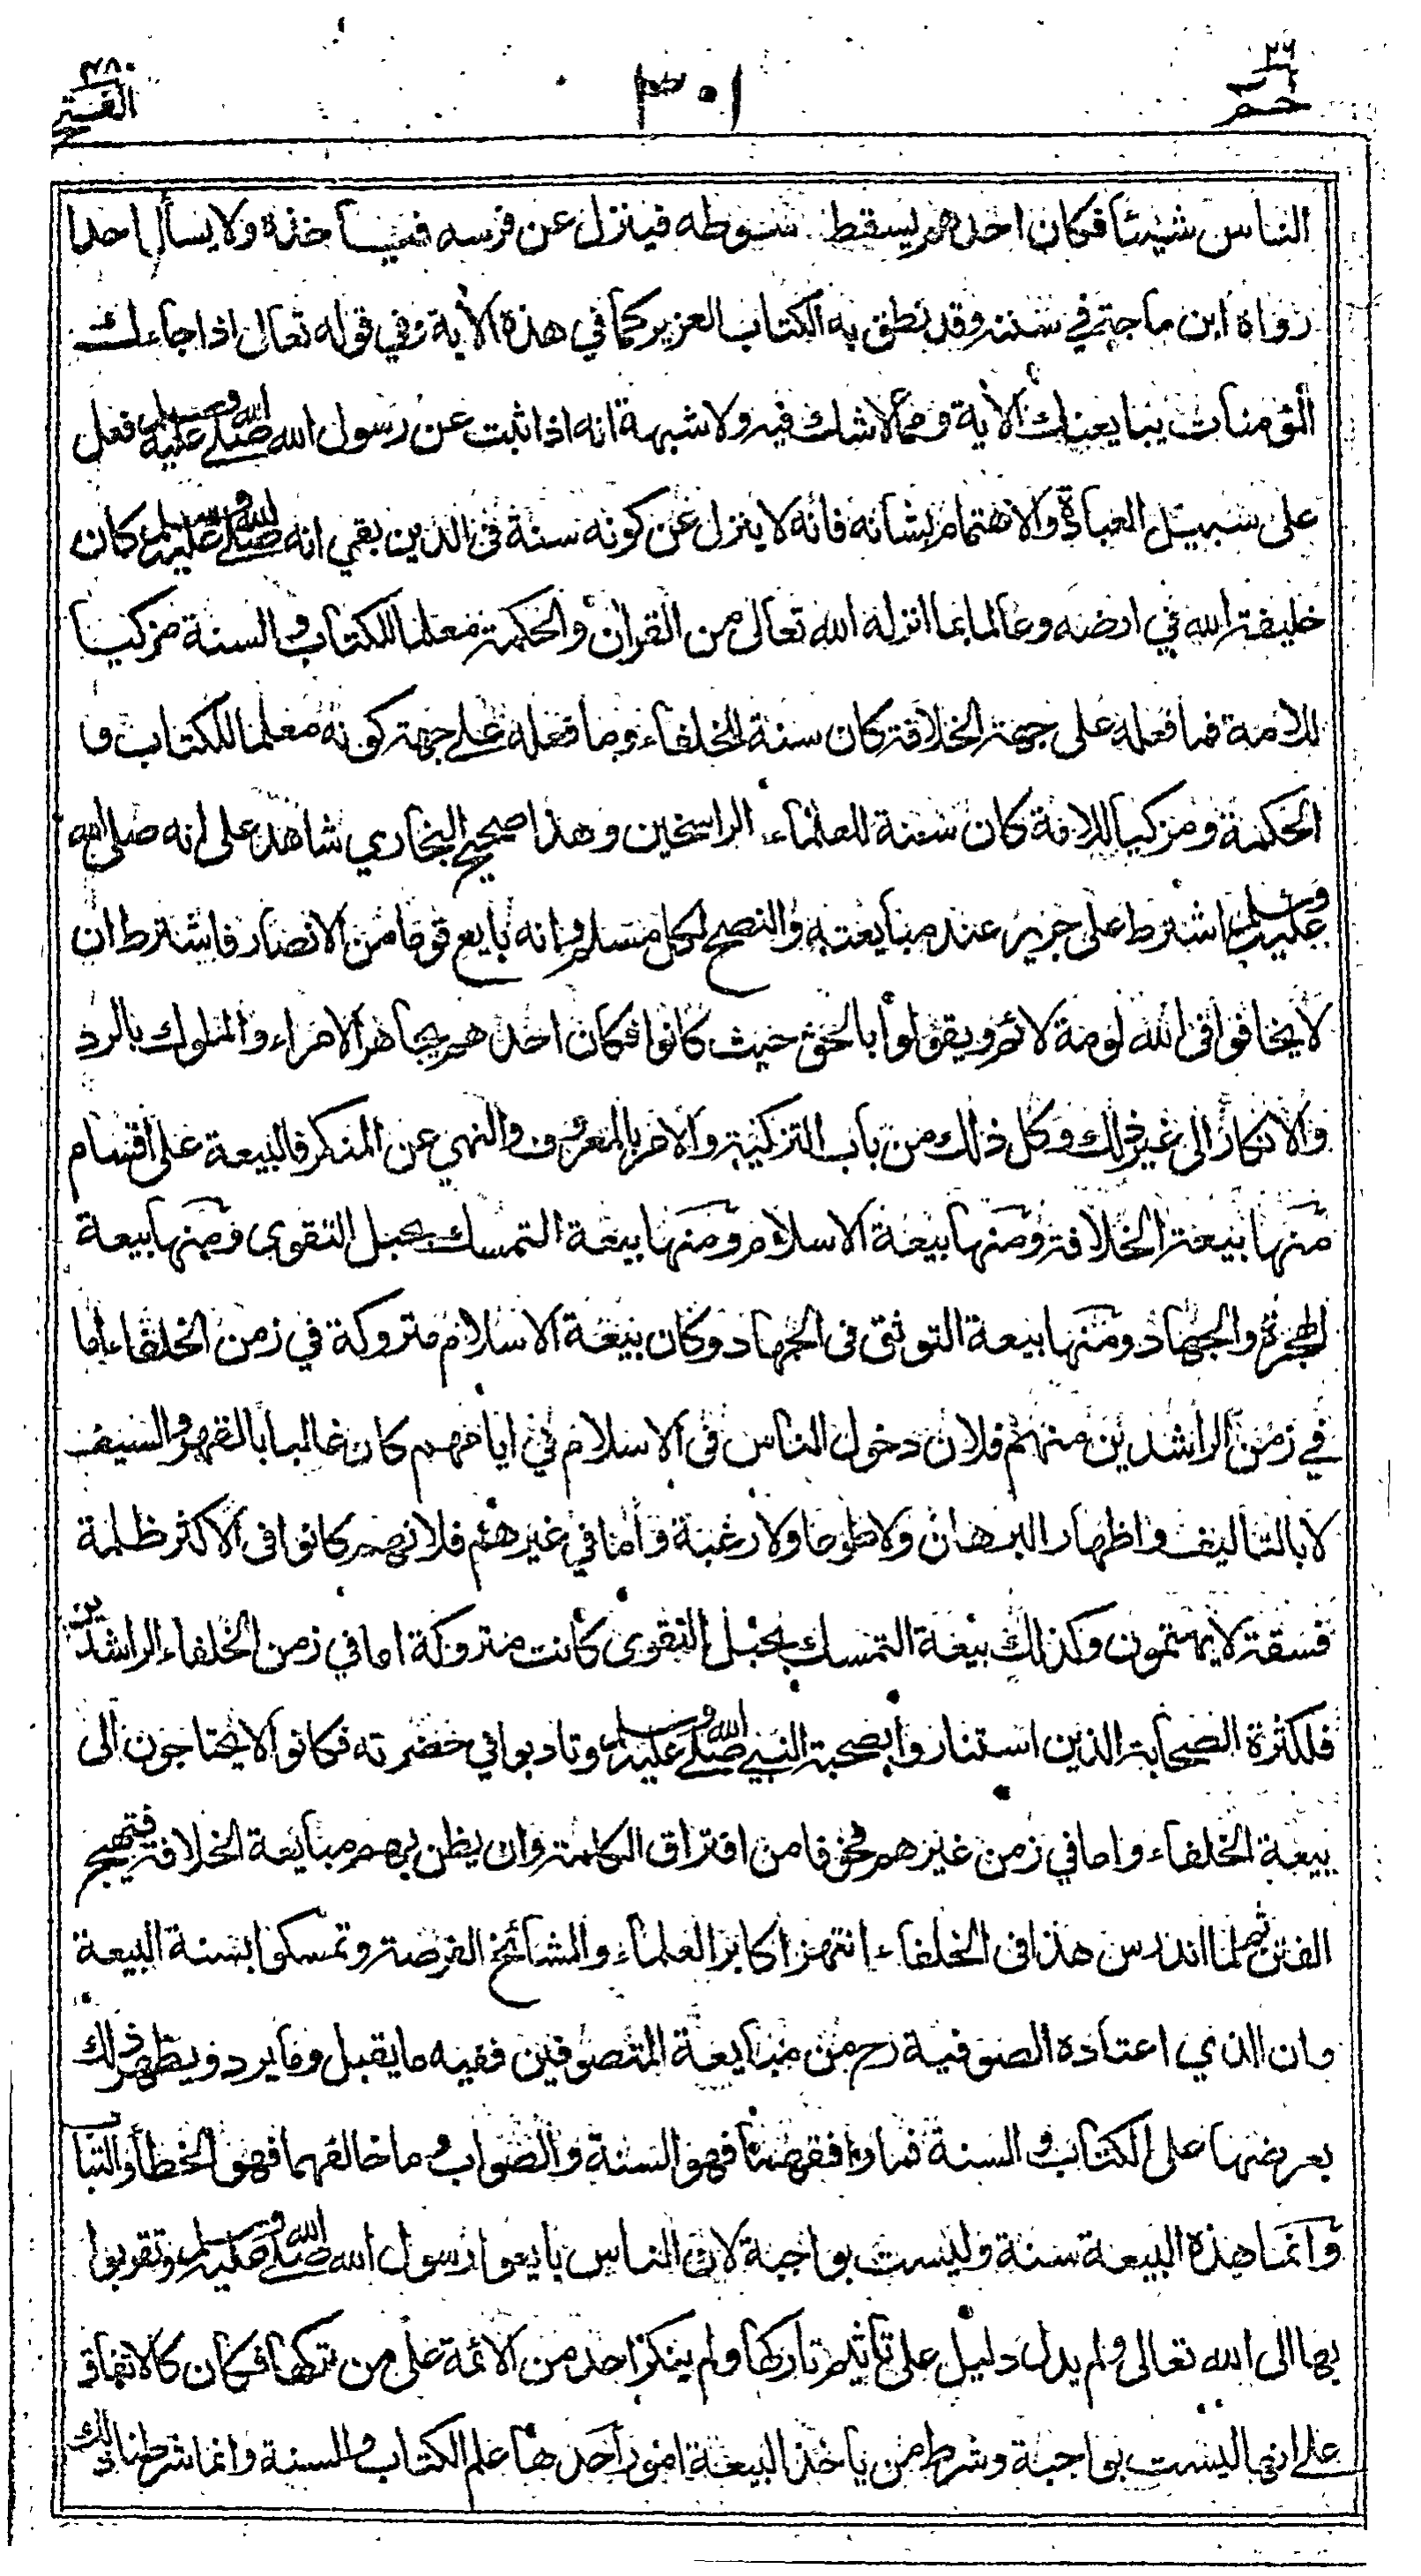 ٢٦
حم
٣٠١
٤٨٠
الفتح
الناس شيئا فكان احدهم يسقط سوطه فينزل عن فرسه فيأخذه ولا يسأل احدا
رواه ابن ماجة في سننه وقد نطق به الكتاب العزيز كما في هذه الأية وفي قوله تعالى اذا جاءك
المؤمنات يبايعنك الأية ومما لا شك فيه ولا شبهة انه اذا ثبت عن رسول الله صلى الله عليه وسلم فعل
على سبيل العبادة والاهتمام بشانه فانه لا ينزل عن كونه سنة فى الدين بقي انه صلى الله عليه وسلم كان
خليفة الله في ارضه وعالما بما انزله الله تعالى من القرأن والحكمة معلما للكتاب والسنة مزكيا
للامة فما فعله على جهة الخلافة كان سنة للخلفاء وما فعله على جهة كونه معلما للكتاب و
الحكمة ومزكيا للامة كان سنة للعلماء الراسخين وهذا صحيح البخاري شاهد على انه صلى الله
عليه وسلم اشترط على جرير عند مبايعته والنصح لكل مسلم وانه بايع قوما من الانصار فاشترط ان
لا يخافوا فى الله لومة لائم ويقولوا بالحق حيث كانوا فكان احدهم يجاهر الامراء والملوك بالرد
والانكار الى غير ذلك وكل ذلك من باب التزكية والامر بالمعروف والنهي عن المنكر فالبيعة على اقسام
منها بيعة الخلافة ومنها بيعة الاسلام ومنها بيعة التمسك بحبل التقوى ومنها بيعة
الهجرة والجهاد ومنها بيعة التوثق فى الجهاد وكان بيعة الاسلام متروكة في زمن الخلفاء اما
في زمن الراشدين منهم فلان دخول الناس فى الاسلام في ايامهم كان غالبا بالقهر والسيف
لا بالتاليف واظهار البرهان ولا طوعا ولا رغبة واما في غيرهم فلانهم كانوا فى الاكثر ظلمة
فسقة لا يهتمون وكذلك بيعة التمسك بحبل التقوى كانت متروكة اما في زمن الخلفاء الراشدين
فلكثرة الصحابة الذين استناروا بصحبة النبي صلى الله عليه وسلم وتادبوا في حضرته فكانوا لا يحتاجون الى
بيعة الخلفاء واما في زمن غيرهم فخوفا من افتراق الكلمة وان يظن بهم مبايعة الخلافة فتهيج
الفتن ثم لما اندرس هذا فى الخلفاء انتهز اكابر العلماء والمشائخ الفرصة وتمسكوا بسنة البيعة
وان الذي اعتاده الصوفية رح من مبايعة المتصوفين ففيه ما يقبل وما يرد ويظهر ذلك
بعرضها على الكتاب والسنة فما وافقهما فهو السنة والصواب وما خالفهما فهو الخطأ والتباب
وانما هذه البيعة سنة وليست بواجبة لان الناس بايعوا رسول الله صلى الله عليه وسلم وتقربوا
بها الى الله تعالى ولم يدل دليل على تأثيم تاركها ولم ينكر احد من الائمة على من تركها فكان كالاتفاق
على انها ليست بواجبة وشرط من ياخذ البيعة امور احدها علم الكتاب والسنة وانما شرطنا ذلك